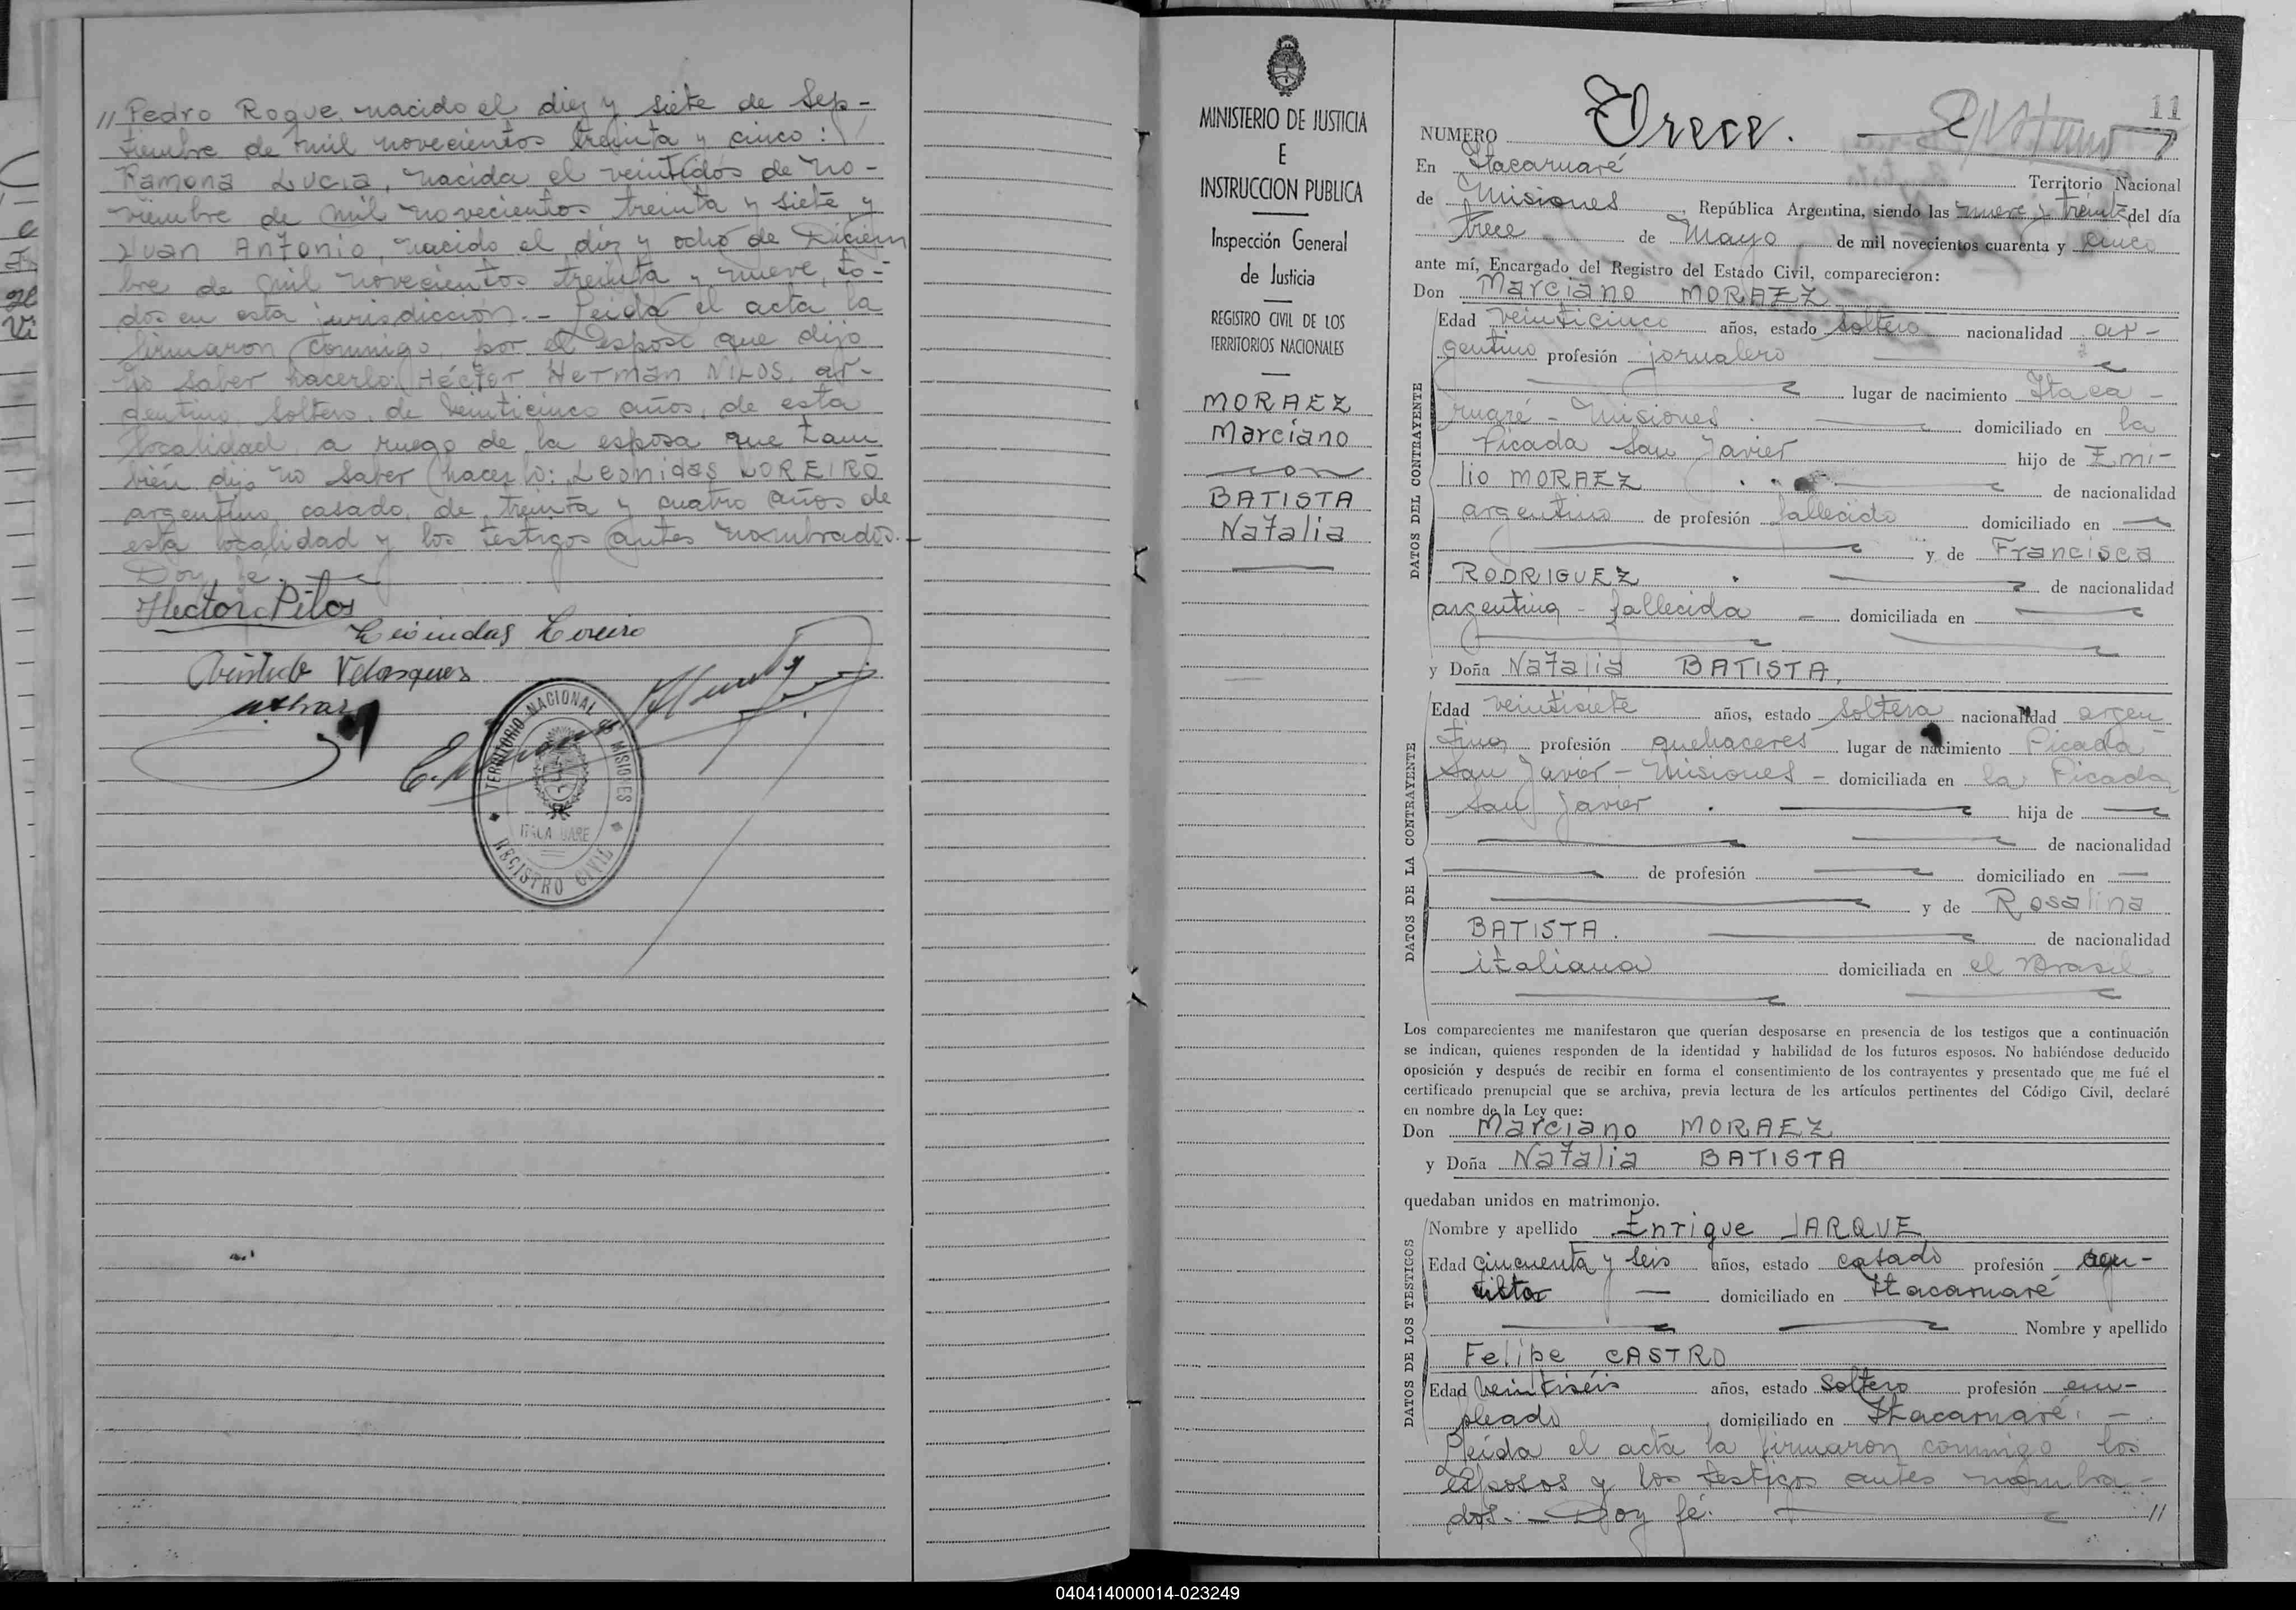 // Pedro Roque, nacido el diez y siete de Sep-
tiembre de mil novecientos treinta y cinco:
Ramona Lucia, nacida el veintidós de No-
viembre de mil novecientos treinta y siete y
Juan Antonio, nacido el diez y ocho de Diciem
bre de mil novecientos treinta y nueve, to-
dos en esta jurisdicción.- Leida el acta la
firmaron conmigo, por el esposo que dijo
no saber hacerlo: Héctor Herman PILOS, ar-
gentino, soltero, de veinticinco años, de esta
localidad a ruego de la esposa que tam
bién dijo no saber hacerlo: Leonidas LOREIRO
argentino, casado, de treinta y cuatro años de
esta localidad y los testigos antes nombrados.-
Doy fe.
Hector Pilos
Leonidas Loreiro
Velasquez
TERRITORIO NACIONAL de MISIONES
REGISTRO CIVIL
MINISTERIO DE JUSTICIA
E
INSTRUCCION PUBLICA
Inspección General
de Justicia
REGISTRO CIVIL DE LOS
TERRITORIOS NACIONALES
MORAEZ
Marciano
con
BATISTA
Natalia
11
NUMERO Trece.
En Itacaruaré Territorio Nacional
de Misiones, República Argentina, siendo las nueve y treinta del día
trece de Mayo de mil novecientos cuarenta y cinco
ante mí, Encargado del Registro del Estado Civil, comparecieron:
Don Marciano MORAEZ
DATOS DEL CONTRAYENTE
Edad veinticinco años, estado soltero nacionalidad ar-
gentino profesión jornalero
lugar de nacimiento Itaca-
ruaré - Misiones. domiciliado en la
Picada San Javier hijo de Emi-
lio MORAEZ de nacionalidad
argentino de profesión fallecido domiciliado en —
y de Francisca
RODRIGUEZ de nacionalidad
argentina - fallecida - domiciliada en —
y Doña Natalia BATISTA,
DATOS DE LA CONTRAYENTE
Edad veintisiete años, estado soltera nacionalidad argen
tina profesión quehaceres lugar de nacimiento Picada
San Javier - Misiones - domiciliada en la Picada
San Javier. hija de —
de nacionalidad
de profesión domiciliado en —
y de Rosalina
BATISTA. de nacionalidad
italiana domiciliada en el Brasil
Los comparecientes me manifestaron que querían desposarse en presencia de los testigos que a continuación
se indican, quienes responden de la identidad y habilidad de los futuros esposos. No habiéndose deducido
oposición y después de recibir en forma el consentimiento de los contrayentes y presentado que me fué el
certificado prenupcial que se archiva, previa lectura de los artículos pertinentes del Código Civil, declaré
en nombre de la Ley que:
Don Marciano MORAEZ
y Doña Natalia BATISTA
quedaban unidos en matrimonio.
DATOS DE LOS TESTIGOS
Nombre y apellido Enrique JARQUE
Edad cincuenta y seis años, estado casado profesión
domiciliado en Itacaruaré
Nombre y apellido
Felipe CASTRO
Edad veintiséis años, estado soltero profesión em-
pleado domiciliado en Itacaruaré. -
Leida el acta la firmaron conmigo los
esposos y los testigos antes nombra-
dos. - Doy fé. //
040414000014-023249